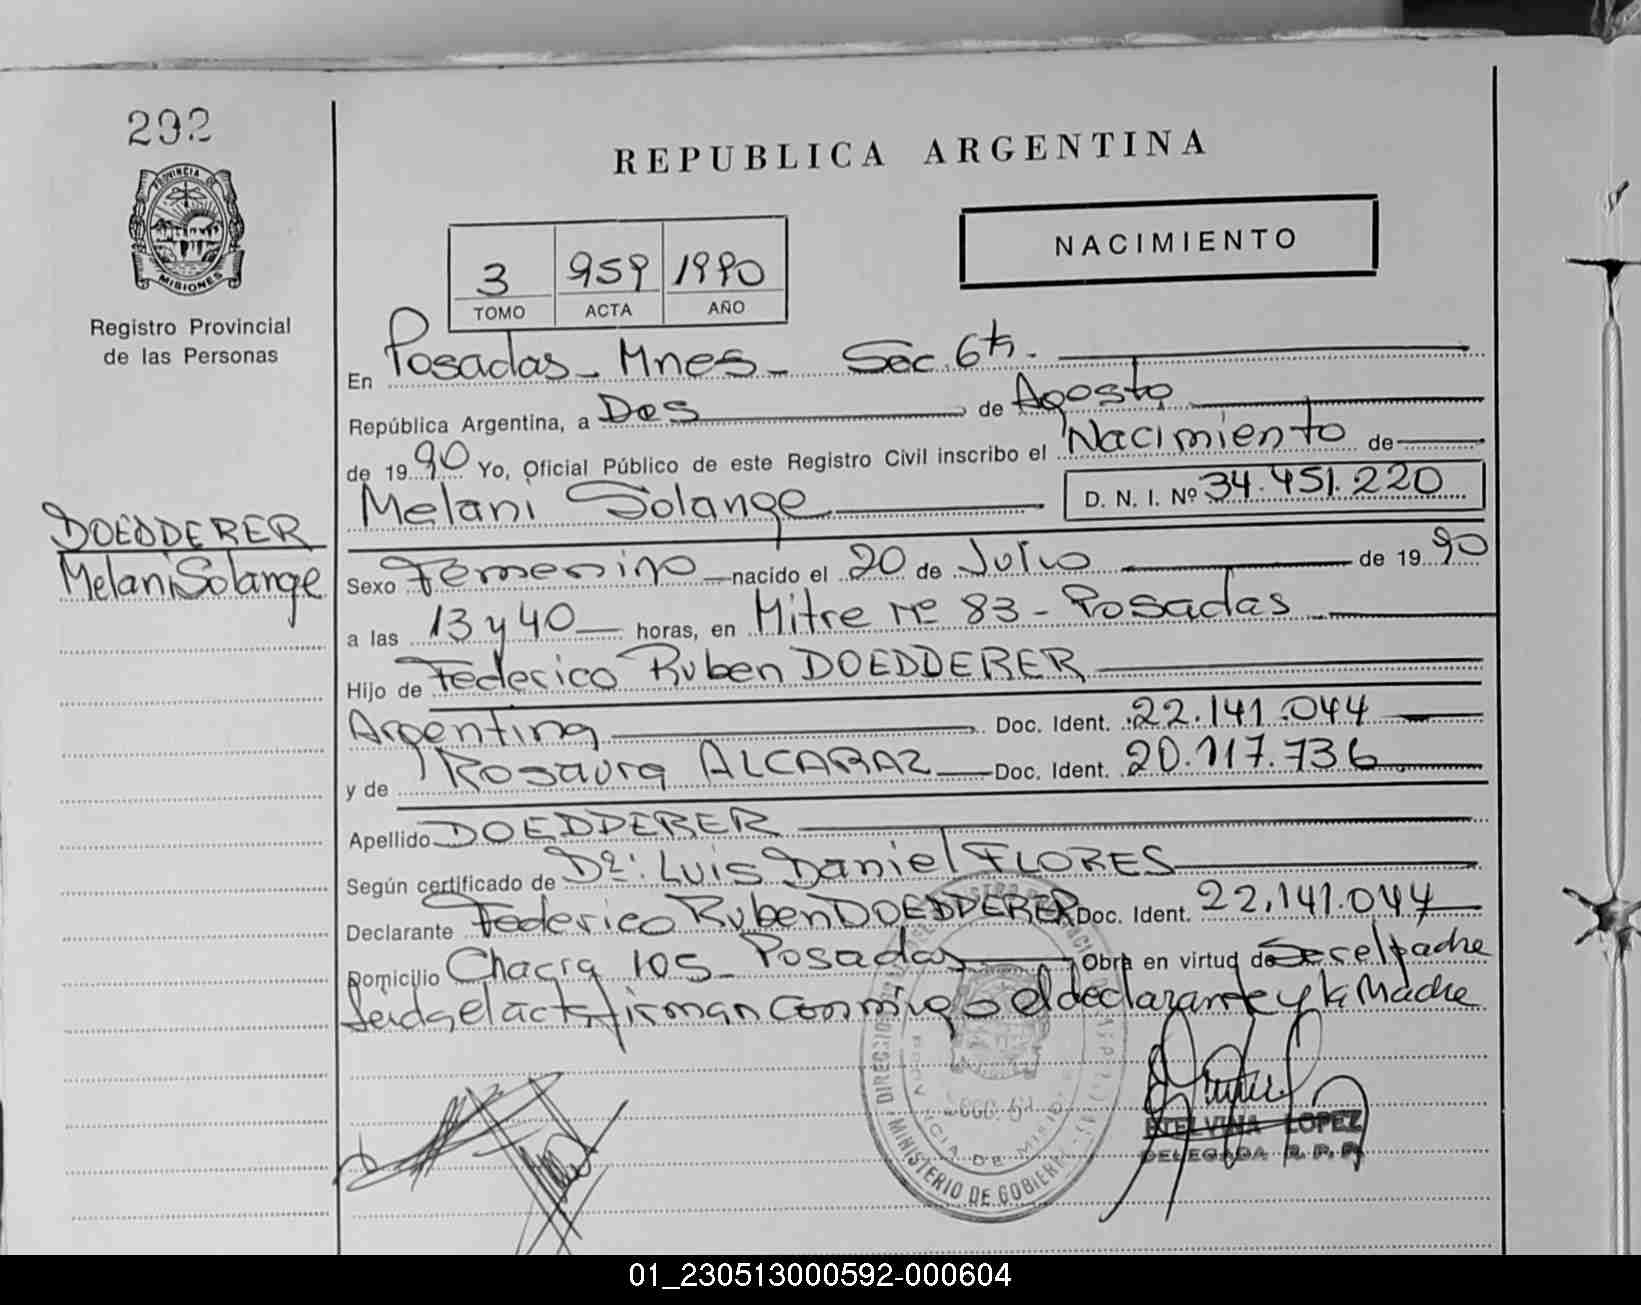 292
PROVINCIA DE
MISIONES
Registro Provincial
de las Personas
DOEDDERER
Melani Solange
REPUBLICA ARGENTINA
NACIMIENTO
3 959 1990
TOMO ACTA AÑO
En Posadas - Mnes - Sec. 6ta.
República Argentina, a Dos de Agosto
de 1990 Yo, Oficial Público de este Registro Civil inscribo el Nacimiento de
Melani Solange D. N. I. Nº 34.451.220
Sexo Femenino nacido el 20 de Julio de 1990
a las 13 y 40 horas, en Mitre Nº 83 - Posadas
Hijo de Federico Ruben DOEDDERER
Argentina Doc. Ident. 22.141.044
y de Rosaura ALCARAZ Doc. Ident. 20.117.736
Apellido DOEDDERER
Según certificado de Dr: Luis Daniel FLORES
Declarante Federico Ruben DOEDDERER Doc. Ident. 22.141.044
Domicilio Chacra 105 - Posadas Obra en virtud de Ser el padre
leida el acta firman conmigo el declarante y la Madre
MINISTERIO DE GOBIERNO
PROVINCIA DE MISIONES
ETELVINA LOPEZ
DELEGADA R. P. P.
01_230513000592-000604